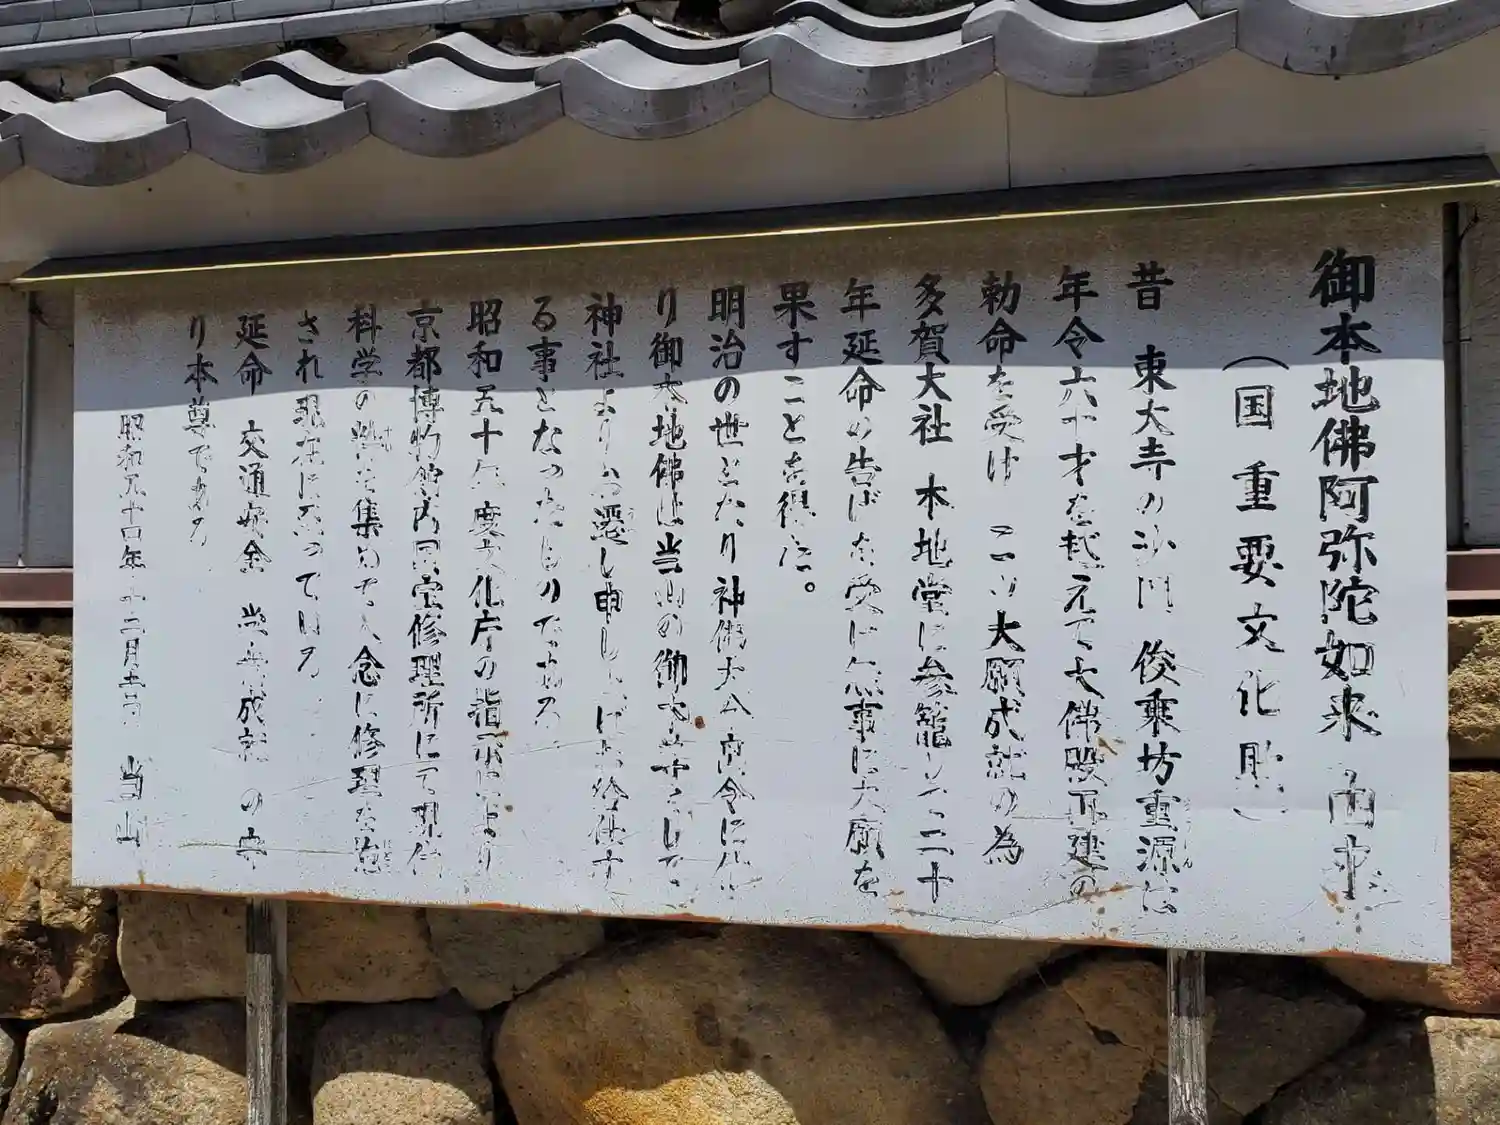 御本地佛阿弥陀如来 由来
（国重要文化財）
昔 東大寺の沙門 俊乗坊重源は
年令六十才を越えて大佛殿再建の
勅命を受け この大願成就の為
多賀大社 本地堂に参籠して二十
年延命の告げを受け無事に大願を
果すことを得た。
明治の世となり神佛 令に
り御本地佛は当山の御 として
神社より 遷し申し
る事となったものである
昭和五十年度文化庁の指示により
京都博物館内国宝修理所にて
科学の粋を集めて入念に修理を
され現在に至っている
延命 交通安全 当病 成就 の
り本尊である
昭和五十四年十二月 当山